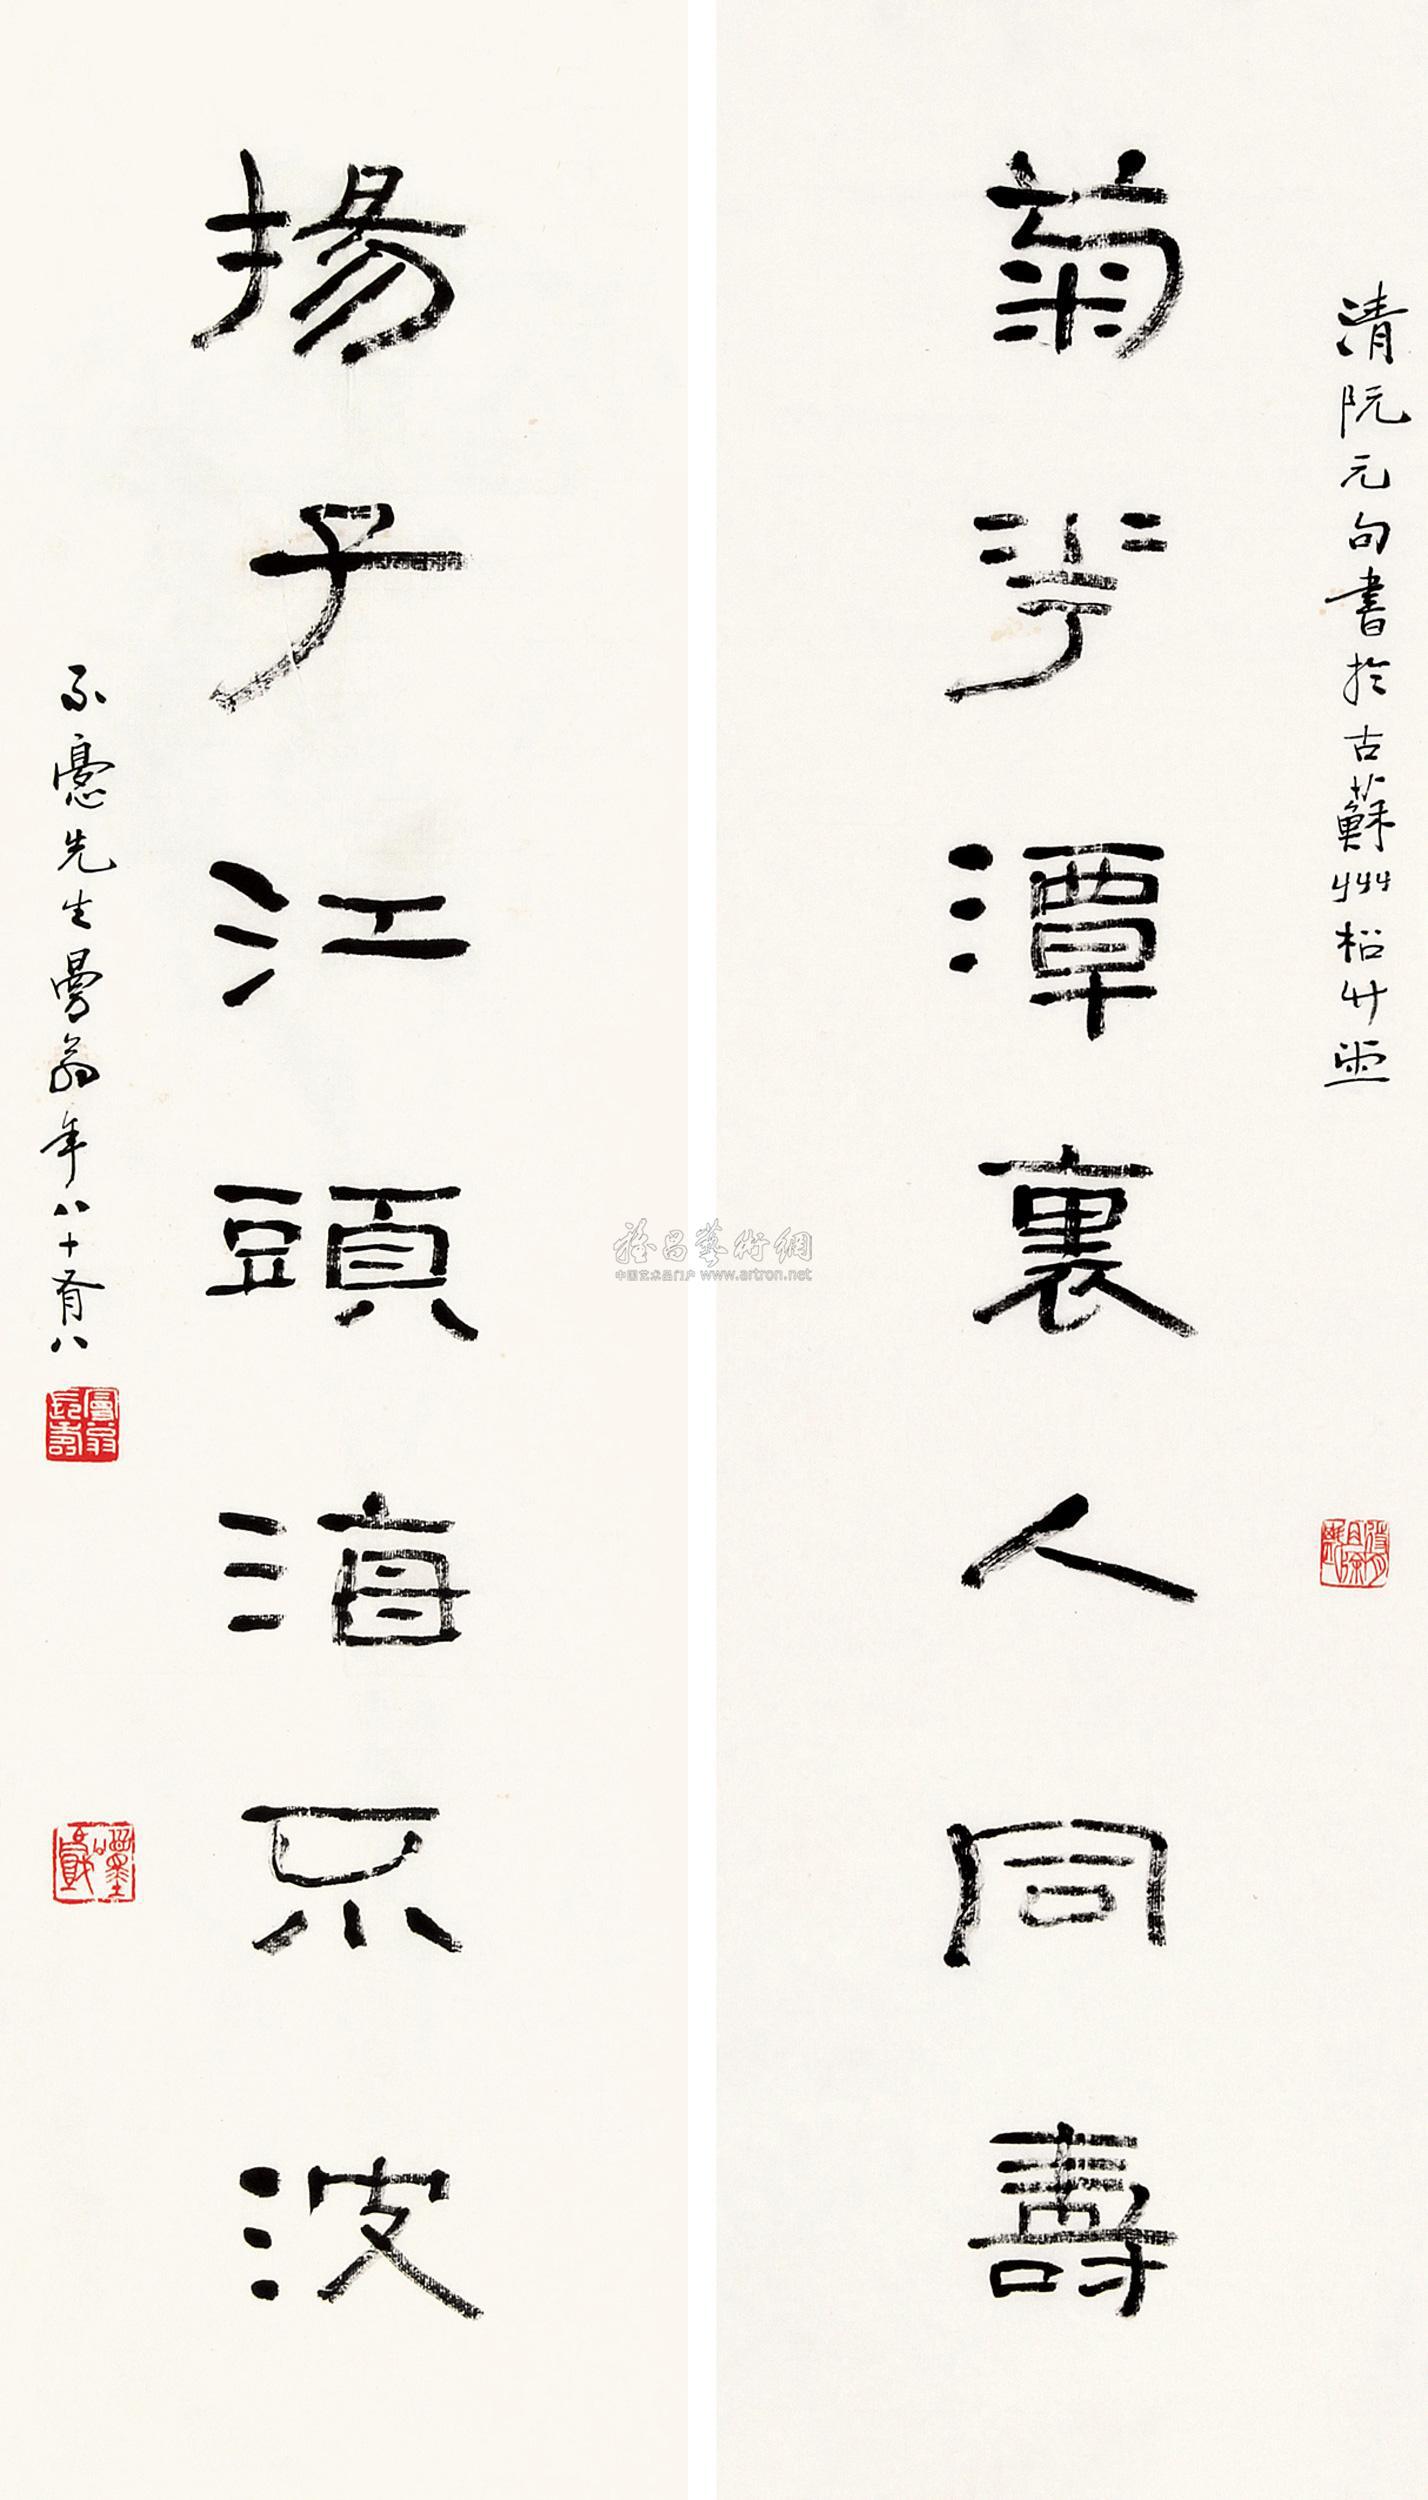 清阮元句書於古蘇州松竹
菊華潭裏人同壽
揚子江頭海不波
不憂先生曼翁年八十有八
曼翁長壽
雅昌藝術網
中国艺术品门户 www.artron.net